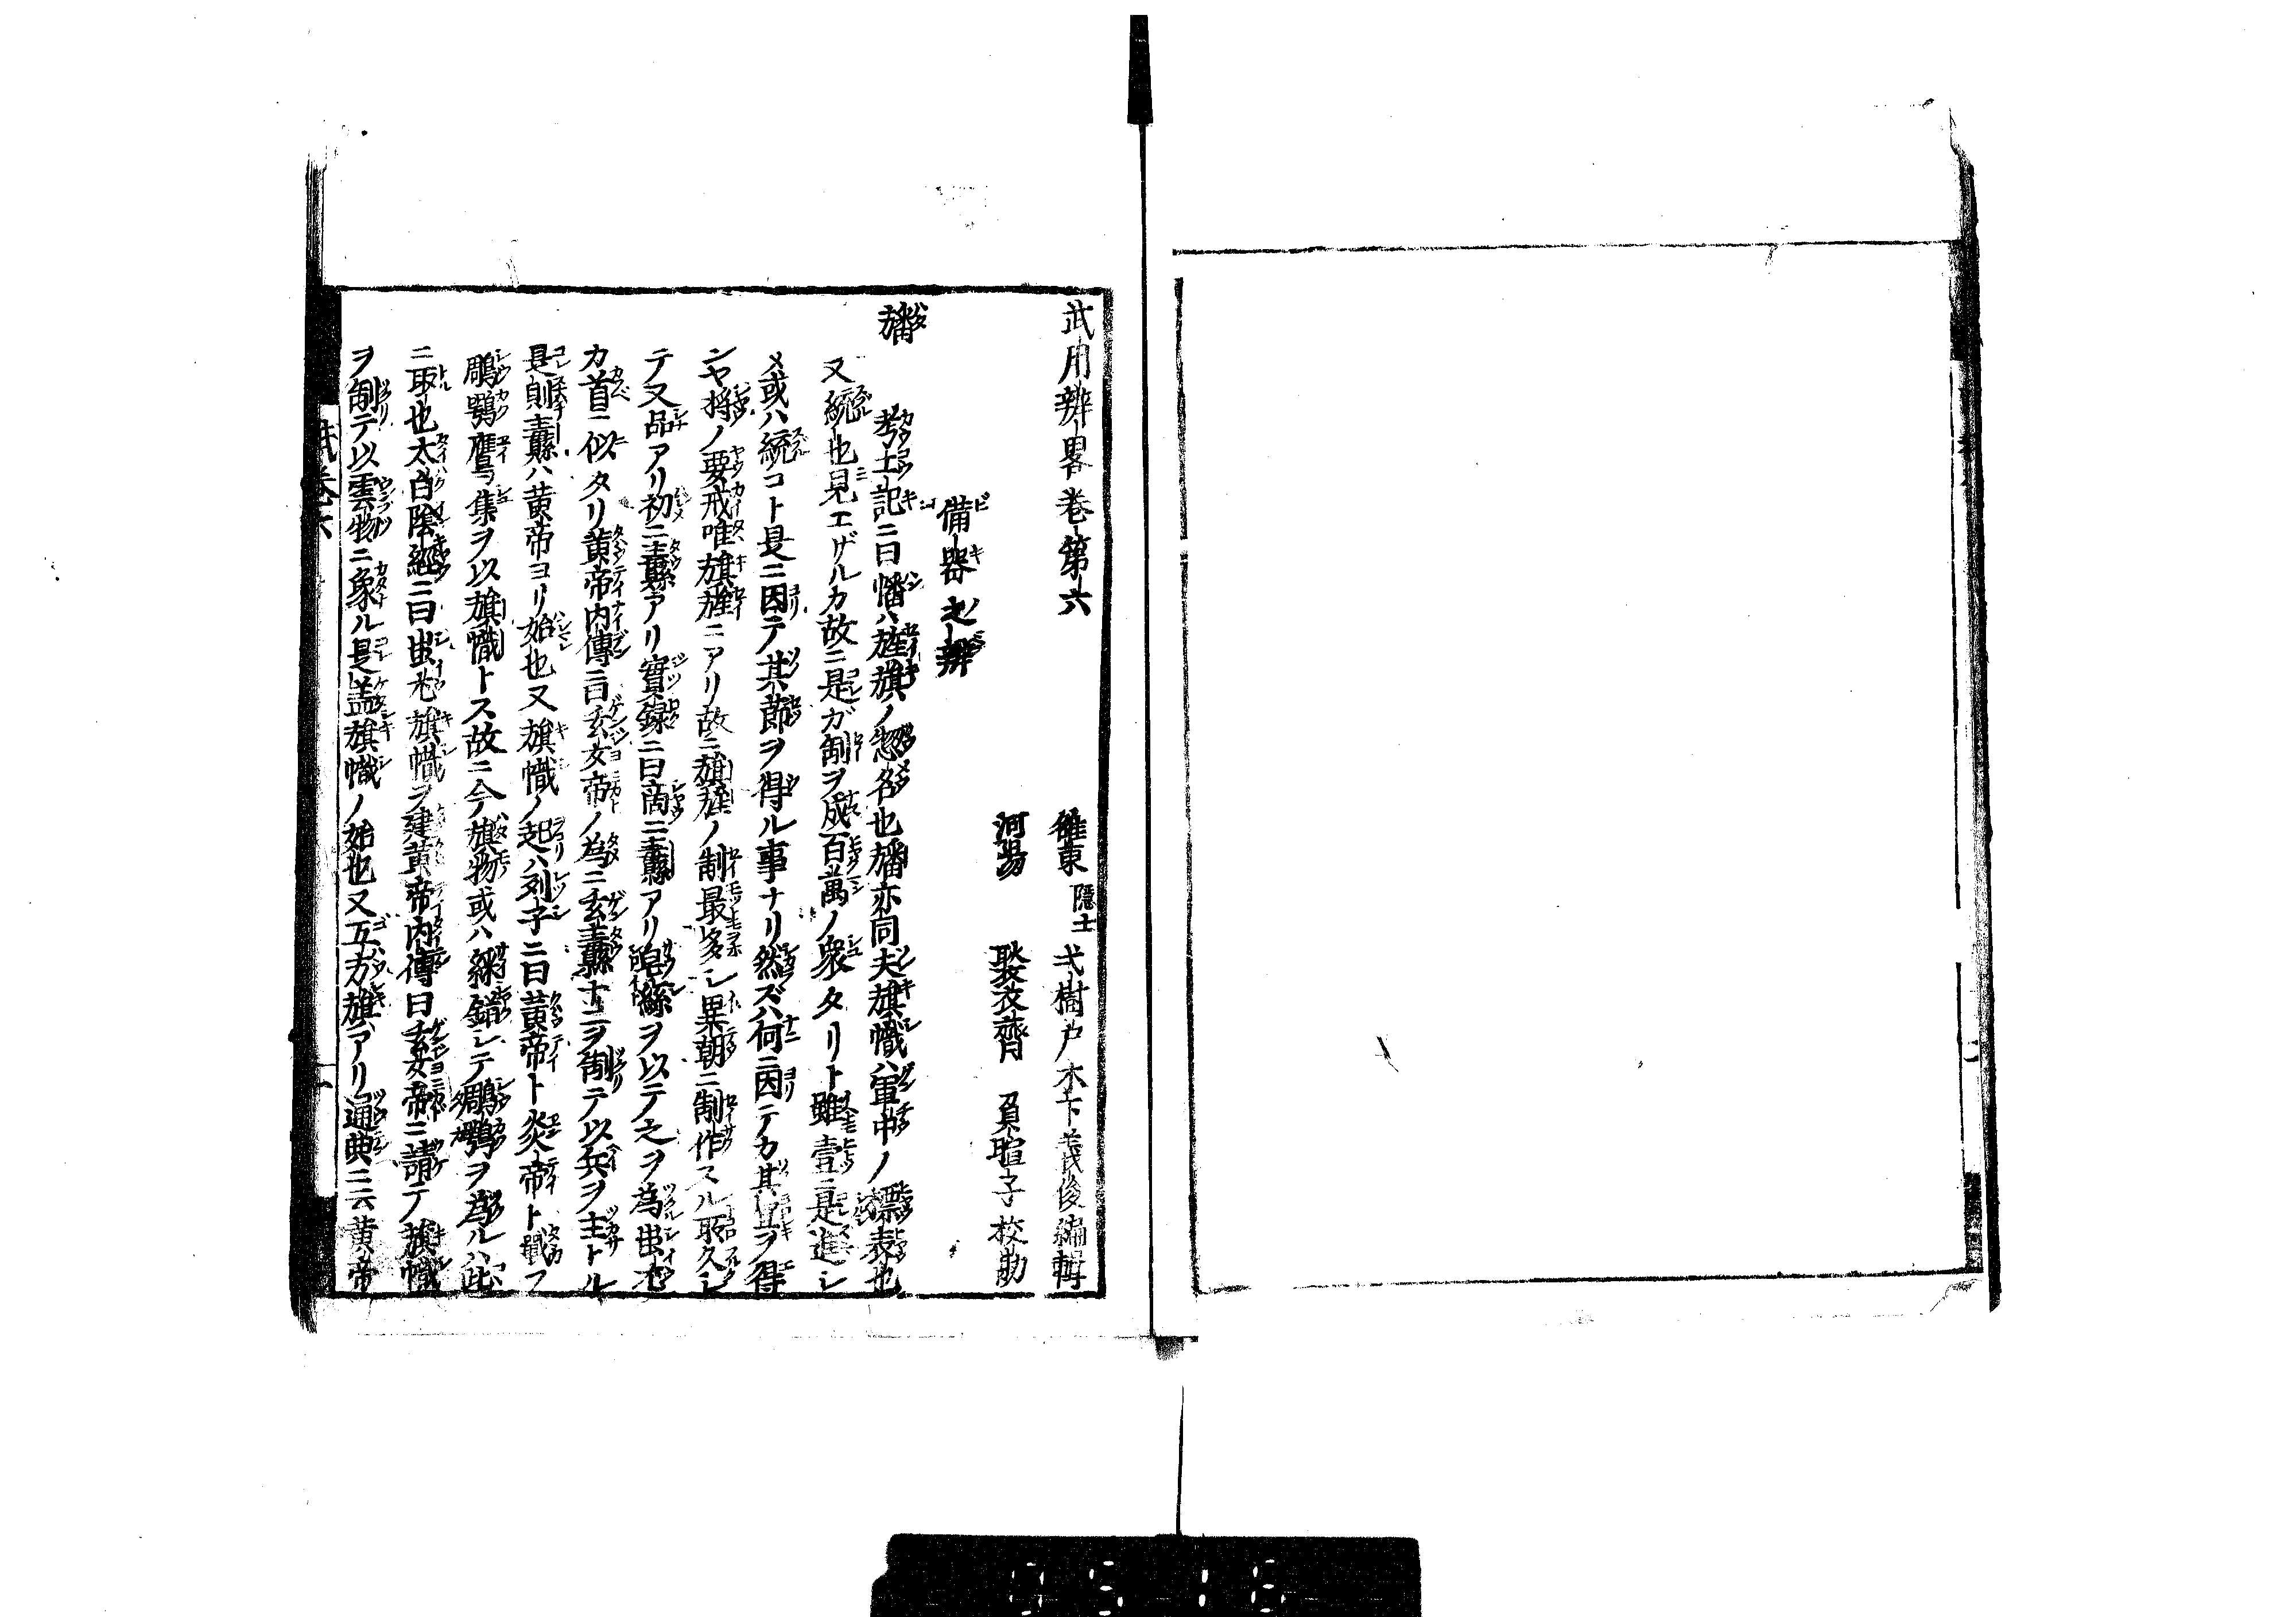 武用辨畧巻第六
雒東隱士 弌樹戸 木下義俊編輯
河陽 褧衣齊 負暄子校訂
備器之辨
旛 考工記ニ曰幡ハ旌旗ノ惣名也旛亦同夫旗幟ハ軍中ノ標表也
又統也見エザルカ故ニ是ガ制ヲ成百萬ノ衆タリト雖壹ニ是進シ
メ或ハ統コト是ニ因テ其節ヲ得ル事ナリ然ズハ何ニ因テカ其
ヲ得
ンヤ将ノ要戒唯旗旌ニアリ故ニ旗旌ノ制最多シ異朝ニ制作スル所久シ
テ又品アリ初ニ纛アリ實録ニ曰商ニ纛アリ皂絲ヲ以テ之ヲ為蚩尤
カ首ニ似タリ黄帝内傳ニ曰玄女帝ノ為ニ玄纛十二ヲ制テ以兵ヲ主トル
是則纛ハ黄帝ヨリ始也又旗幟ノ起ハ列子ニ曰黄帝ト炎帝ト戰フ
鵰鶚鷹集ヲ以旗幟トス故ニ今旗物或ハ錯シテ鵰鶚ヲ為ルハ此
ニ取也太白陰經ニ曰蚩尤旗幟ヲ建黄帝内傳曰玄女帝ニ請テ旗幟
ヲ制テ以雲物ニ象ル是盖旗幟ノ始也又五方旗アリ通典ニ云黄帝
武巻六